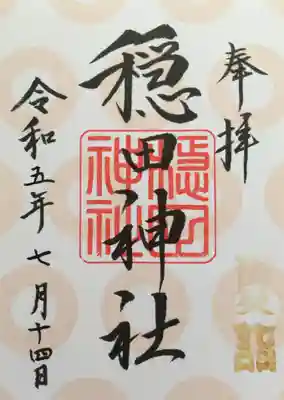 奉拝
穏田神社
穏田神社
令和五年七月十四日